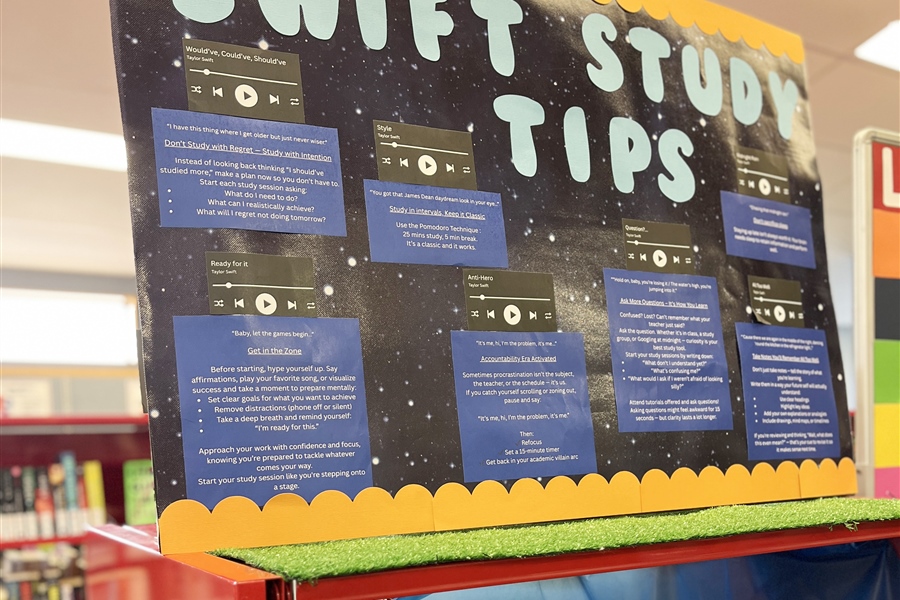 SWIFT STUDY
TIPS
Would've, Could've, Should've
Taylor Swift
"I have this thing where I get older but just never wiser."
Don't Study with Regret — Study with Intention
Instead of looking back thinking "I should've
studied more," make a plan now so you don't have to.
Start each study session asking:
What do I need to do?
What can I realistically achieve?
What will I regret not doing tomorrow?
Style
Taylor Swift
"You got that James Dean daydream look in your eye.."
Study in intervals, Keep it Classic
Use the Pomodoro Technique :
25 mins study, 5 min break.
It's a classic and it works.
Ready for it
Taylor Swift
"Baby, let the games begin.."
Get in the Zone
Before starting, hype yourself up. Say
affirmations, play your favorite song, or visualize
success and take a moment to prepare mentally:
Set clear goals for what you want to achieve
Remove distractions (phone off or silent)
Take a deep breath and remind yourself:
"I'm ready for this."
Approach your work with confidence and focus,
knowing you're prepared to tackle whatever
comes your way.
Start your study session like you're stepping onto
a stage.
Anti-Hero
Taylor Swift
"It's me, hi, I'm the problem, it's me.."
Accountability Era Activated
Sometimes procrastination isn't the subject,
the teacher, or the schedule — it's us.
If you catch yourself scrolling or zoning out,
pause and say:
"It's me, hi, I'm the problem, it's me."
Then:
Refocus
Set a 15-minute timer
Get back in your academic villain arc
Question?..
Taylor Swift
"Hold on, baby, you're losing it / The water's high, you're
jumping into it."
Ask More Questions – It's How You Learn
Confused? Lost? Can't remember what your
teacher just said?
Ask the question. Whether it's in class, a study
group, or Googling at midnight — curiosity is your
best study tool.
Start your study sessions by writing down:
"What don't I understand yet?"
"What's confusing me?"
"What would I ask if I weren't afraid of looking
silly?"
Attend tutorials offered and ask questions!
Asking questions might feel awkward for 15
seconds — but clarity lasts a lot longer.
All Too Well
Take Notes You'll Remember All Too Well
Don't just take notes — tell the story of what
you're learning.
Write them in a way your future self will actually
understand.
Use clear headings
Highlight key ideas
Add your own explanations or analogies
Include drawings, mind maps, or timelines
If you're reviewing and thinking, "Wait, what does
this even mean?" — that's your cue to revise it so
it makes sense next time.
L